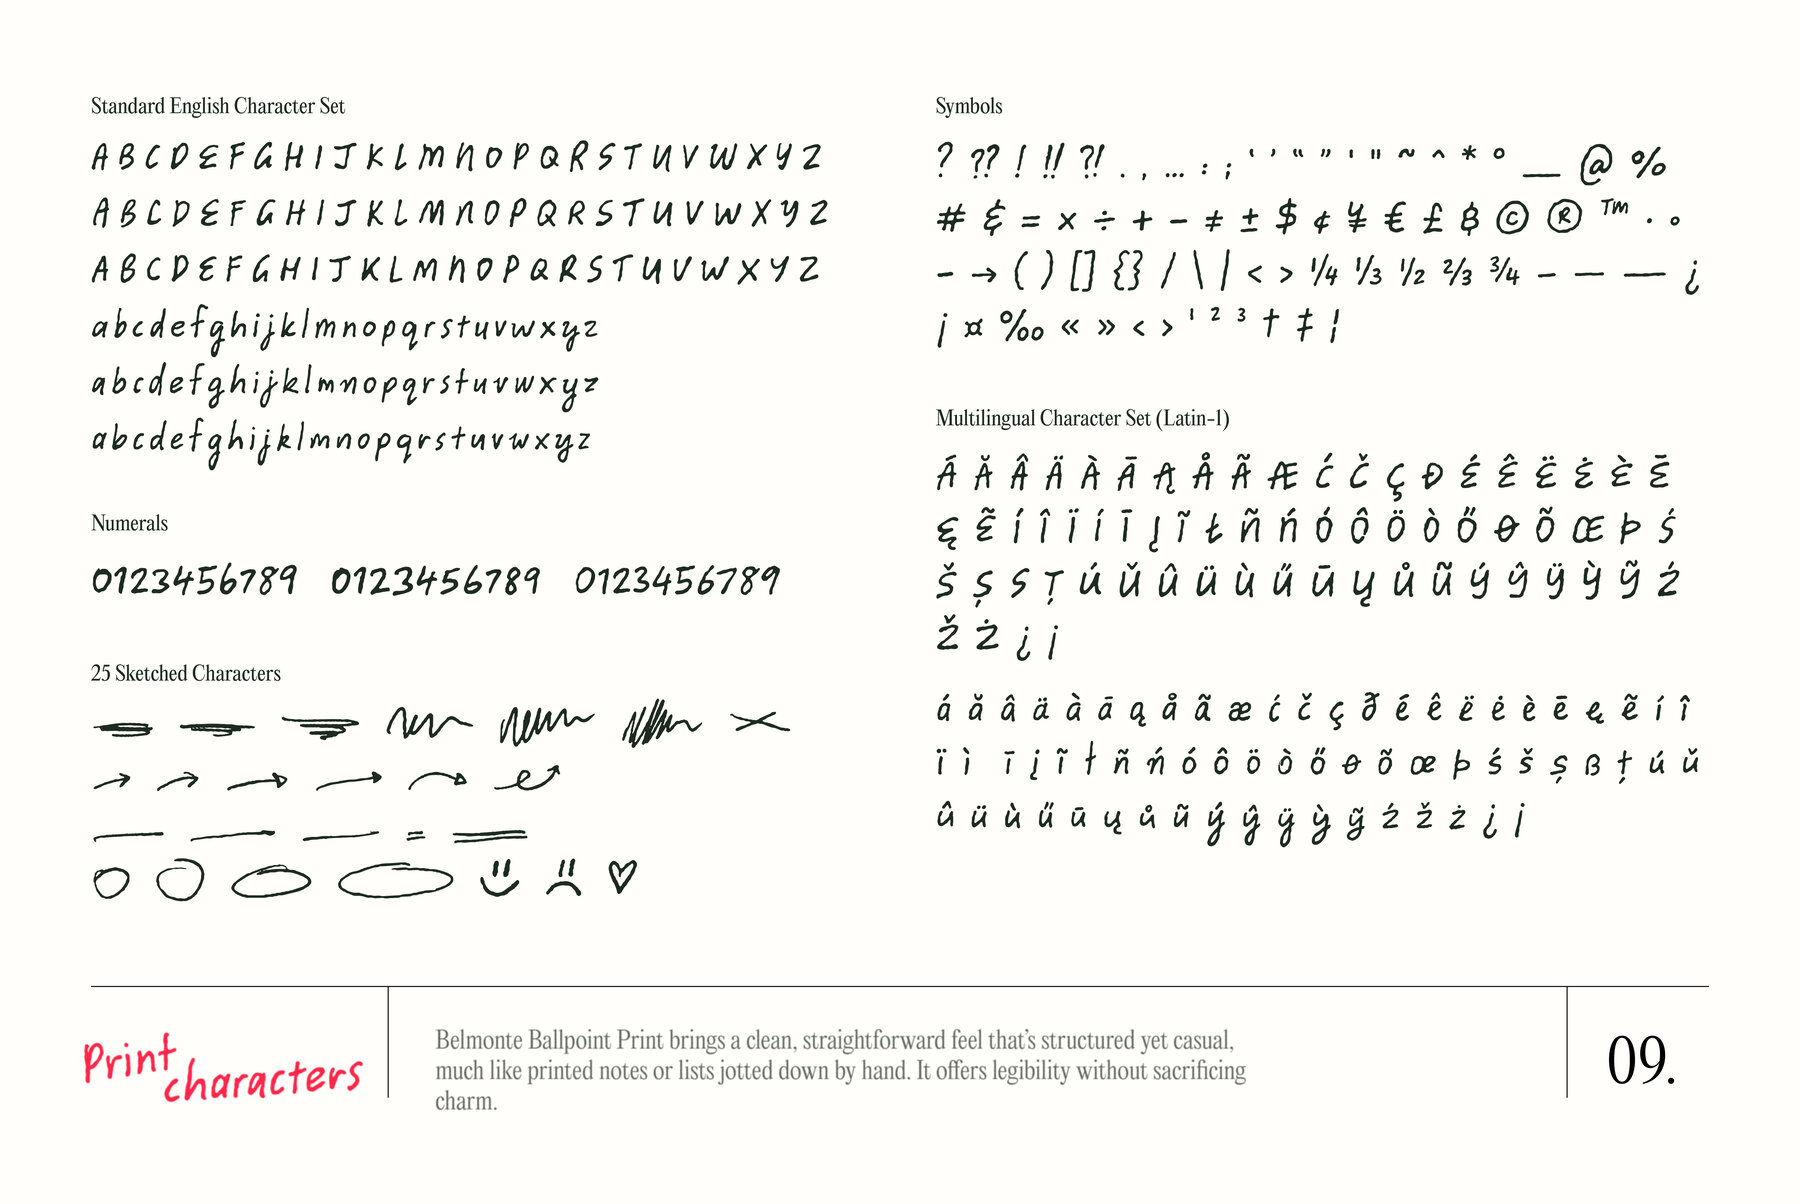 Standard English Character Set
A B C D E F G H I J K L M N O P Q R S T U V W X Y Z
A B C D E F G H I J K L M N O P Q R S T U V W X Y Z
A B C D E F G H I J K L M N O P Q R S T U V W X Y Z
a b c d e f g h i j k l m n o p q r s t u v w x y z
a b c d e f g h i j k l m n o p q r s t u v w x y z
a b c d e f g h i j k l m n o p q r s t u v w x y z
Numerals
0123456789 0123456789 0123456789
25 Sketched Characters
Symbols
? ?? ! !! ?! . , … : ; ‘ ’ “ ” ' " ~ ^ * ° _ @ %
# & = × ÷ + − ≠ ± $ ¢ ¥ € £ ₿ © ® ™ · ◦
- → ( ) [ ] { } / \ | < > ¼ ⅓ ½ ⅔ ¾ - – — ¿
¡ ¤ ‰ « » ‹ › ¹ ² ³ † ‡ ¦
Multilingual Character Set (Latin-1)
Á Ă Â Ä À Ā Ą Å Ã Æ Ć Č Ç Đ É Ê Ë Ė È Ē
Ę Ẽ Í Î Ï Í Ī Į Ĩ Ł Ñ Ń Ó Ô Ö Ò Ő Ø Õ Œ Þ Ś
Š Ș S Ț Ú Ŭ Û Ü Ù Ű Ū Ų Ů Ũ Ý Ŷ Ÿ Ỳ Ỹ Ź
Ž Ż ¿ ¡
á ă â ä à ā ą å ã æ ć č ç ð é ê ë ė è ē ę ẽ í î
ï ì ī į ĩ ł ñ ń ó ô ö ò ő ø õ œ þ ś š ș ß ț ú ŭ
û ü ù ű ū ų ů ũ ý ŷ ÿ ỳ ỹ ź ž ż ¿ ¡
Print
characters
Belmonte Ballpoint Print brings a clean, straightforward feel that’s structured yet casual,
much like printed notes or lists jotted down by hand. It offers legibility without sacrificing
charm.
09.